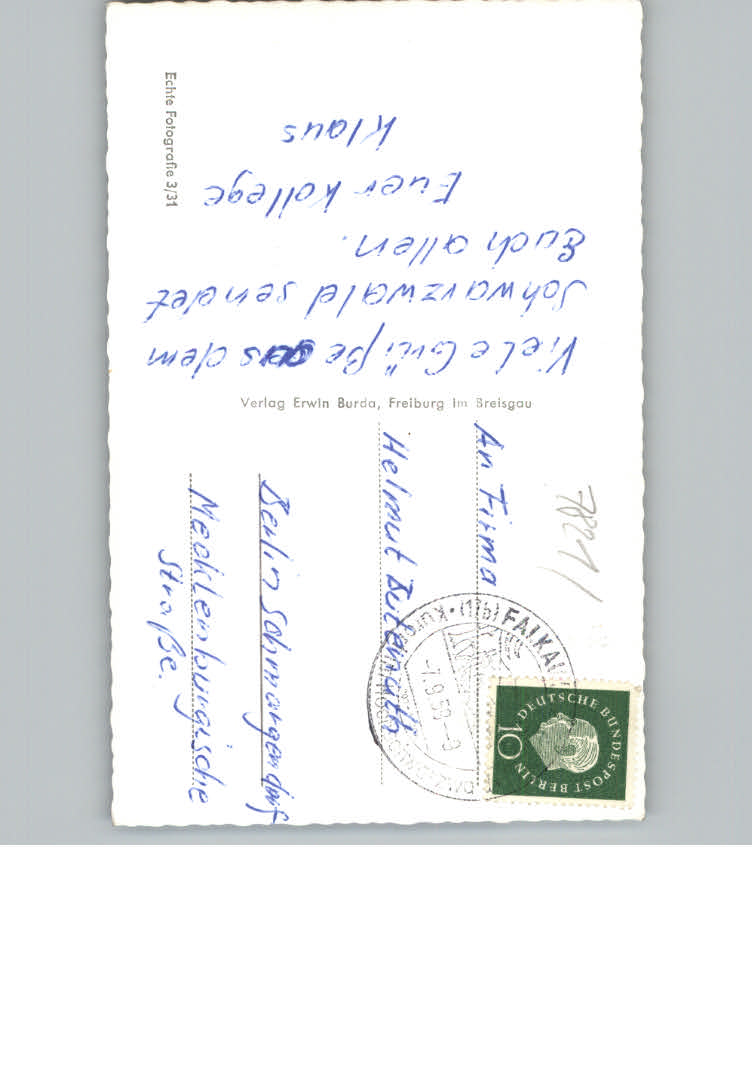 Viele Grüße aus dem
Schwarzwald sendet
Euch allen.
Euer Kollege
Klaus
Echte Fotografie 3/31
Verlag Erwin Burda, Freiburg im Breisgau
An Firma
Helmut Butenuth
Berlin Schmargendorf
Mecklenburgische
Straße.
7821/
(17b) FALKAU
-7.9.59-9
DEUTSCHE BUNDESPOST BERLIN
10